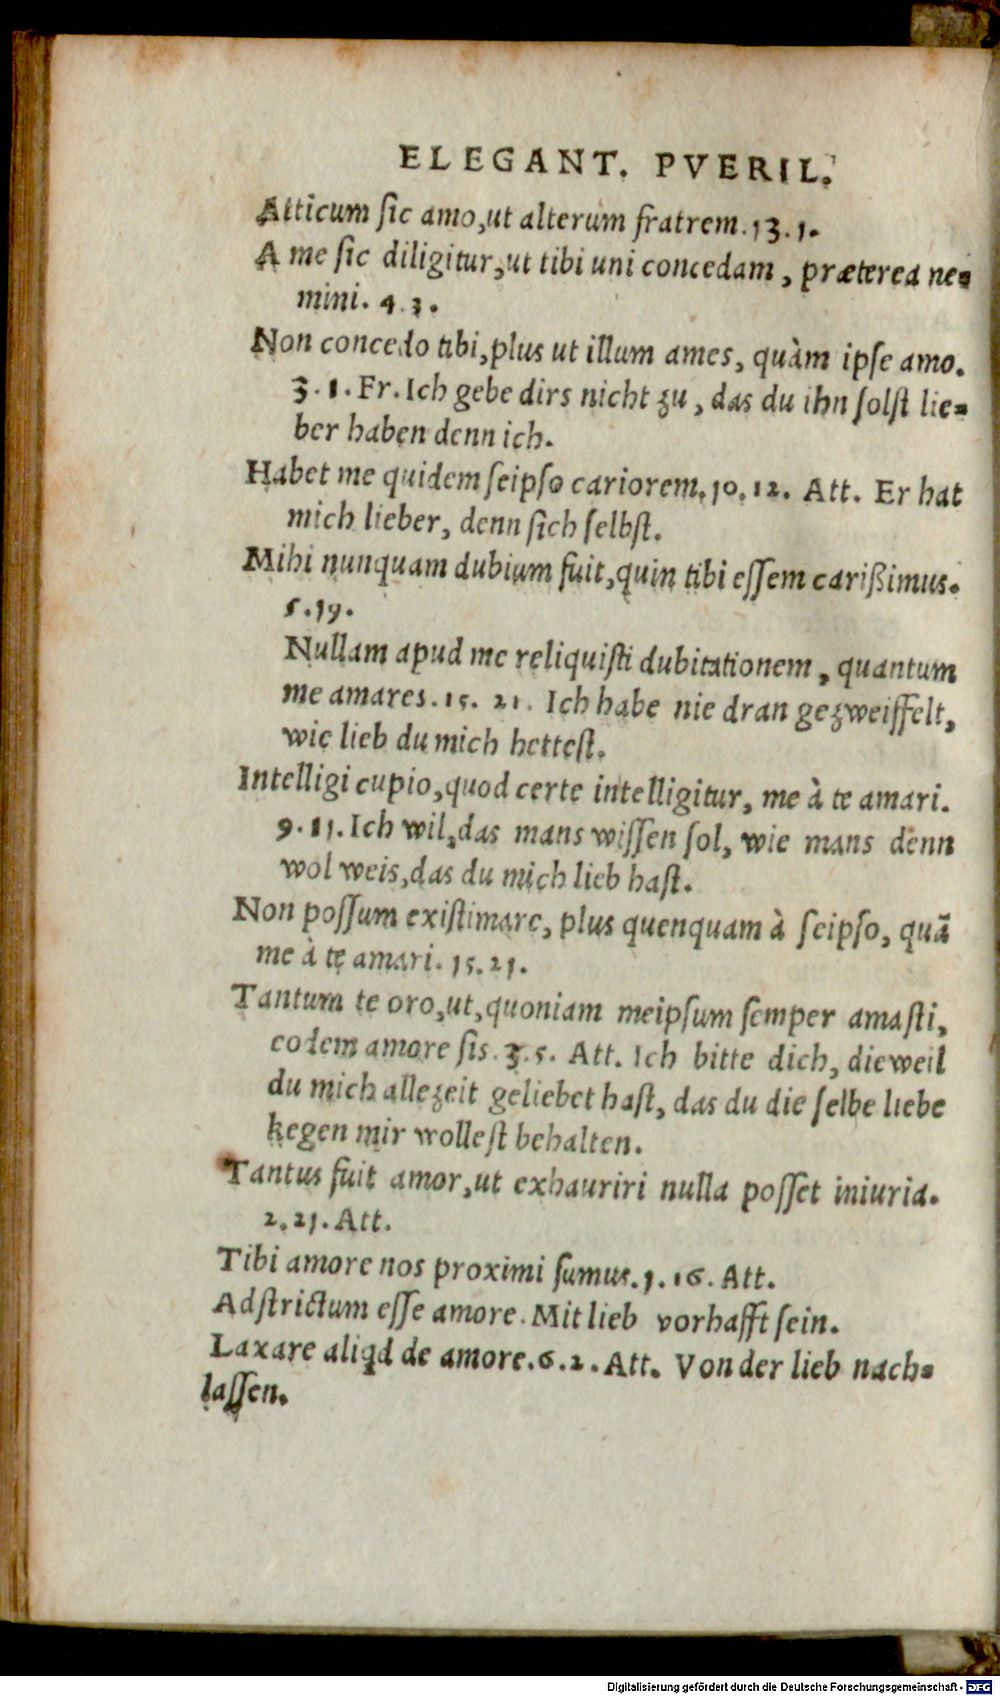 ELEGANT. PVERIL.
Atticum ſic amo,ut alterum fratrem.13.1.
A me ſic diligitur,ut tibi uni concedam, præterea ne=
mini. 4.3.
Non concedo tibi,plus ut illum ames, quàm ipſe amo.
3.1.Fr. Ich gebe dirs nicht zu, das du ihn ſolſt lie=
ber haben denn ich.
Habet me quidem ſeipſo cariorem.10.12. Att. Er hat
mich lieber, denn ſich ſelbſt.
Mihi nunquam dubium fuit,quin tibi eſſem carißimus.
5.19.
Nullam apud me reliquiſti dubitationem, quantum
me amares.15. 21. Ich habe nie dran gezweiffelt,
wie lieb du mich hetteſt.
Intelligi cupio,quod certe intelligitur, me à te amari.
9.11. Ich wil,das mans wiſſen ſol, wie mans denn
wol weis,das du mich lieb haſt.
Non poſſum exiſtimare, plus quenquam à ſeipſo, quã
me à te amari. 15.21.
Tantum te oro,ut,quoniam meipſum ſemper amaſti,
eodem amore ſis.3.5. Att. Ich bitte dich, dieweil
du mich allezeit geliebet haſt, das du die ſelbe liebe
kegen mir wolleſt behalten.
Tantus fuit amor,ut exhauriri nulla poſſet iniuria.
2.21. Att.
Tibi amore nos proximi ſumus.1.16. Att.
Adſtrictum eſſe amore. Mit lieb vorhafft ſein.
Laxare aliqd de amore.6.2. Att. Von der lieb nach=
laſſen.
Digitalisierung gefördert durch die Deutsche Forschungsgemeinschaft - DFG